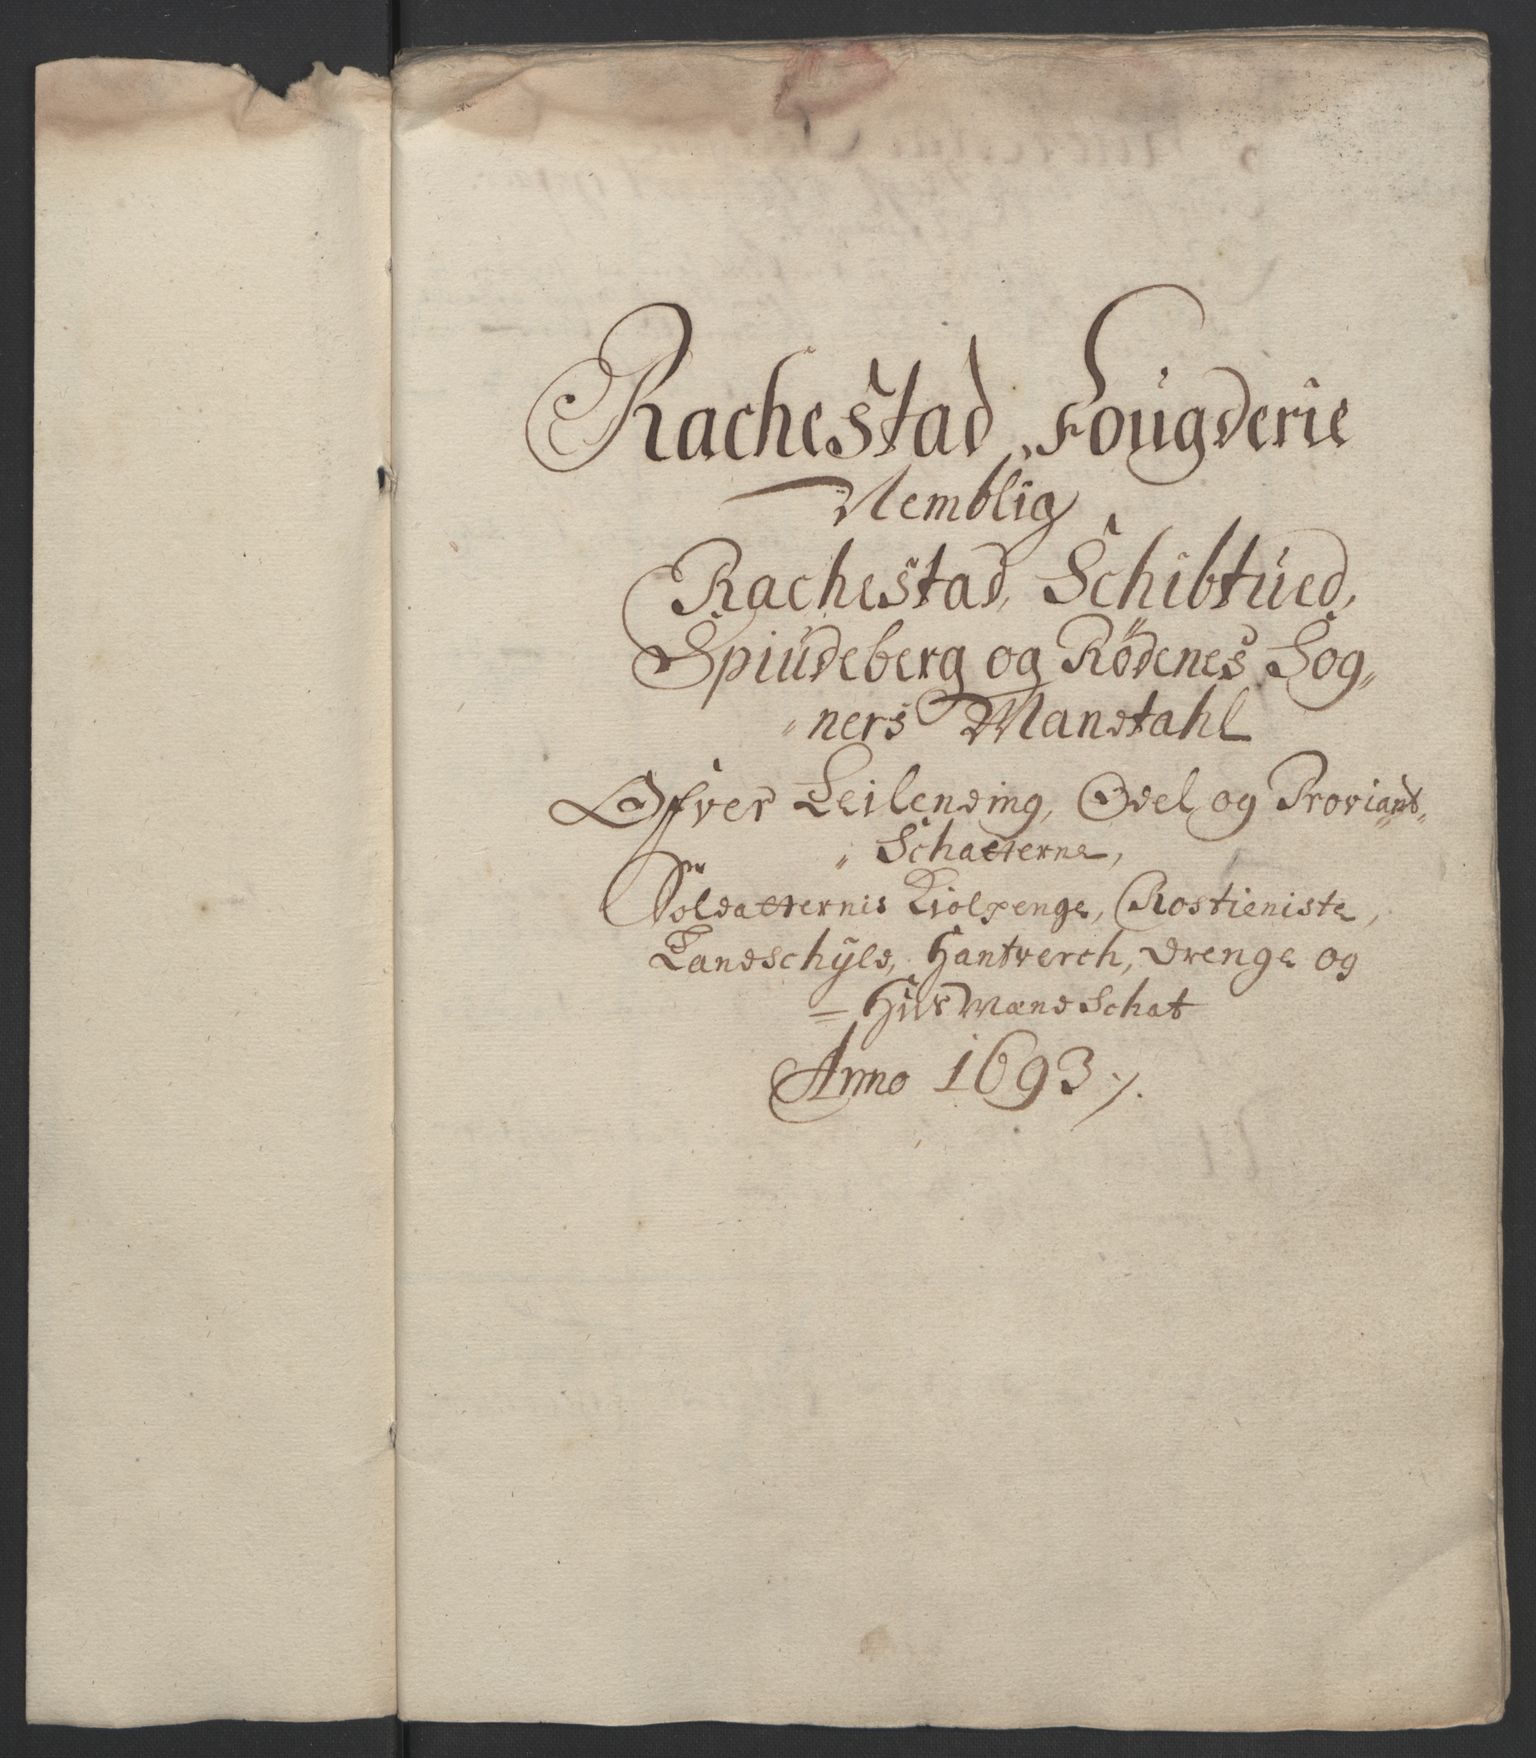 Rachestad Fougderie
Nemblig
Rachestad, Schibtued,
Spiudeberg og Rödenes Sog„
„ners Mandtahl
Offver Leilending, Odel og Proviant„
„Schatterne,
Soldatternis Kiolpenge, Rostieniste,
Landschyld, Hantverch, drenge og
= Huus Mænd Schat
Anno 1693 ./.